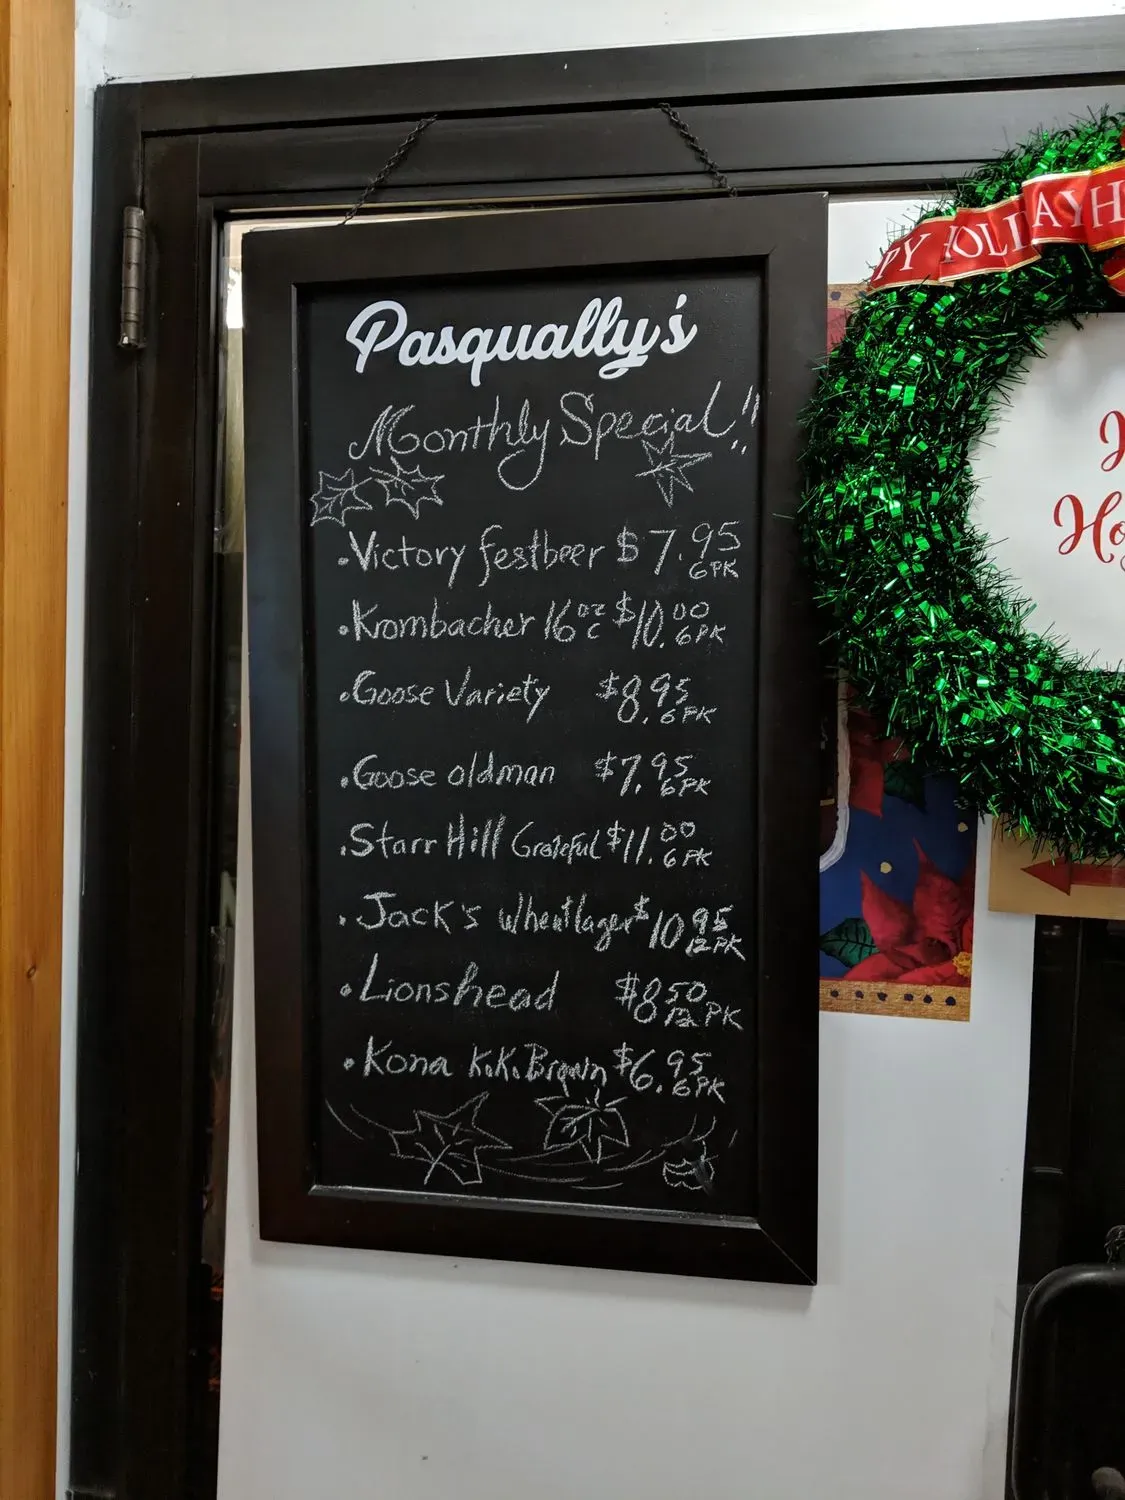 Pasqually's
Monthly Special!!
• Victory festbeer $7.95 6PK
• Krombacher 16oz c $10.00 6PK
• Goose Variety $8.95 6PK
• Goose oldman $7.95 6PK
• Starr Hill Grateful $11.00 6PK
• Jack's wheat lager $10.95 12PK
• Lionshead $8.50 12PK
• Kona K.K. Brown $6.95 6PK
PY HOLIDAYH
Ho